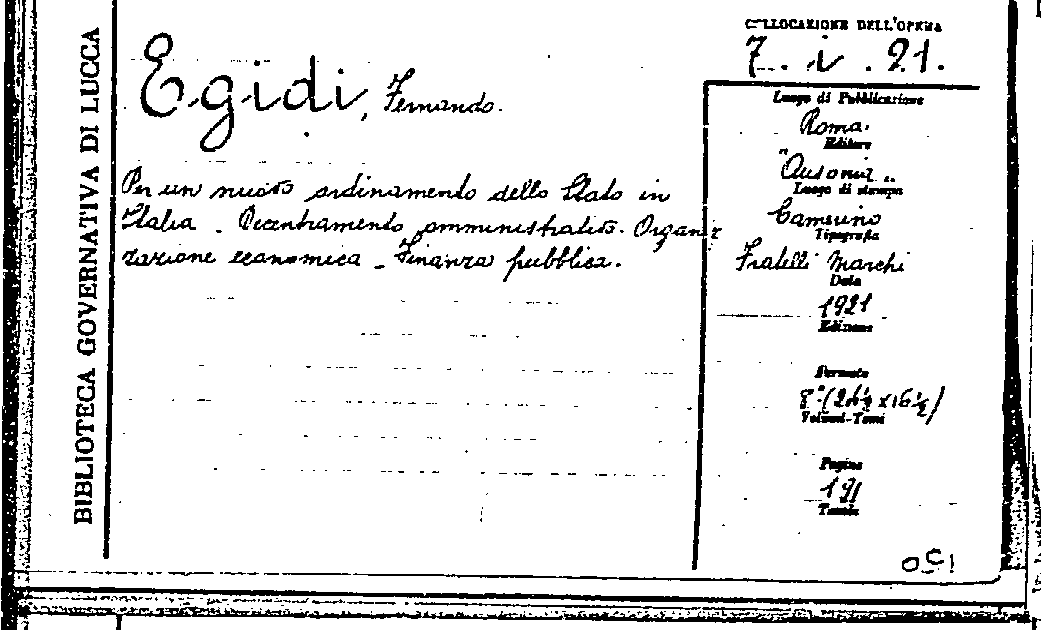 BIBLIOTECA GOVERNATIVA DI LUCCA
COLLOCAZIONE DELL'OPERA
7. i. 21.
Egidi, Fernando.
Per un nuovo ordinamento dello Stato in
Italia - Decentramento amministrativo. Organiz
zazione economica - Finanza pubblica.
Luogo di Pubblicazione
Roma.
Editore
"Ausonia"
Luogo di stampa
Camerino
Tipografia
Fratelli Marchi
Data
1921
Edizione
Formato
8° (24½ x 16½)
Volumi-Tomi
Pagine
191
Tavole